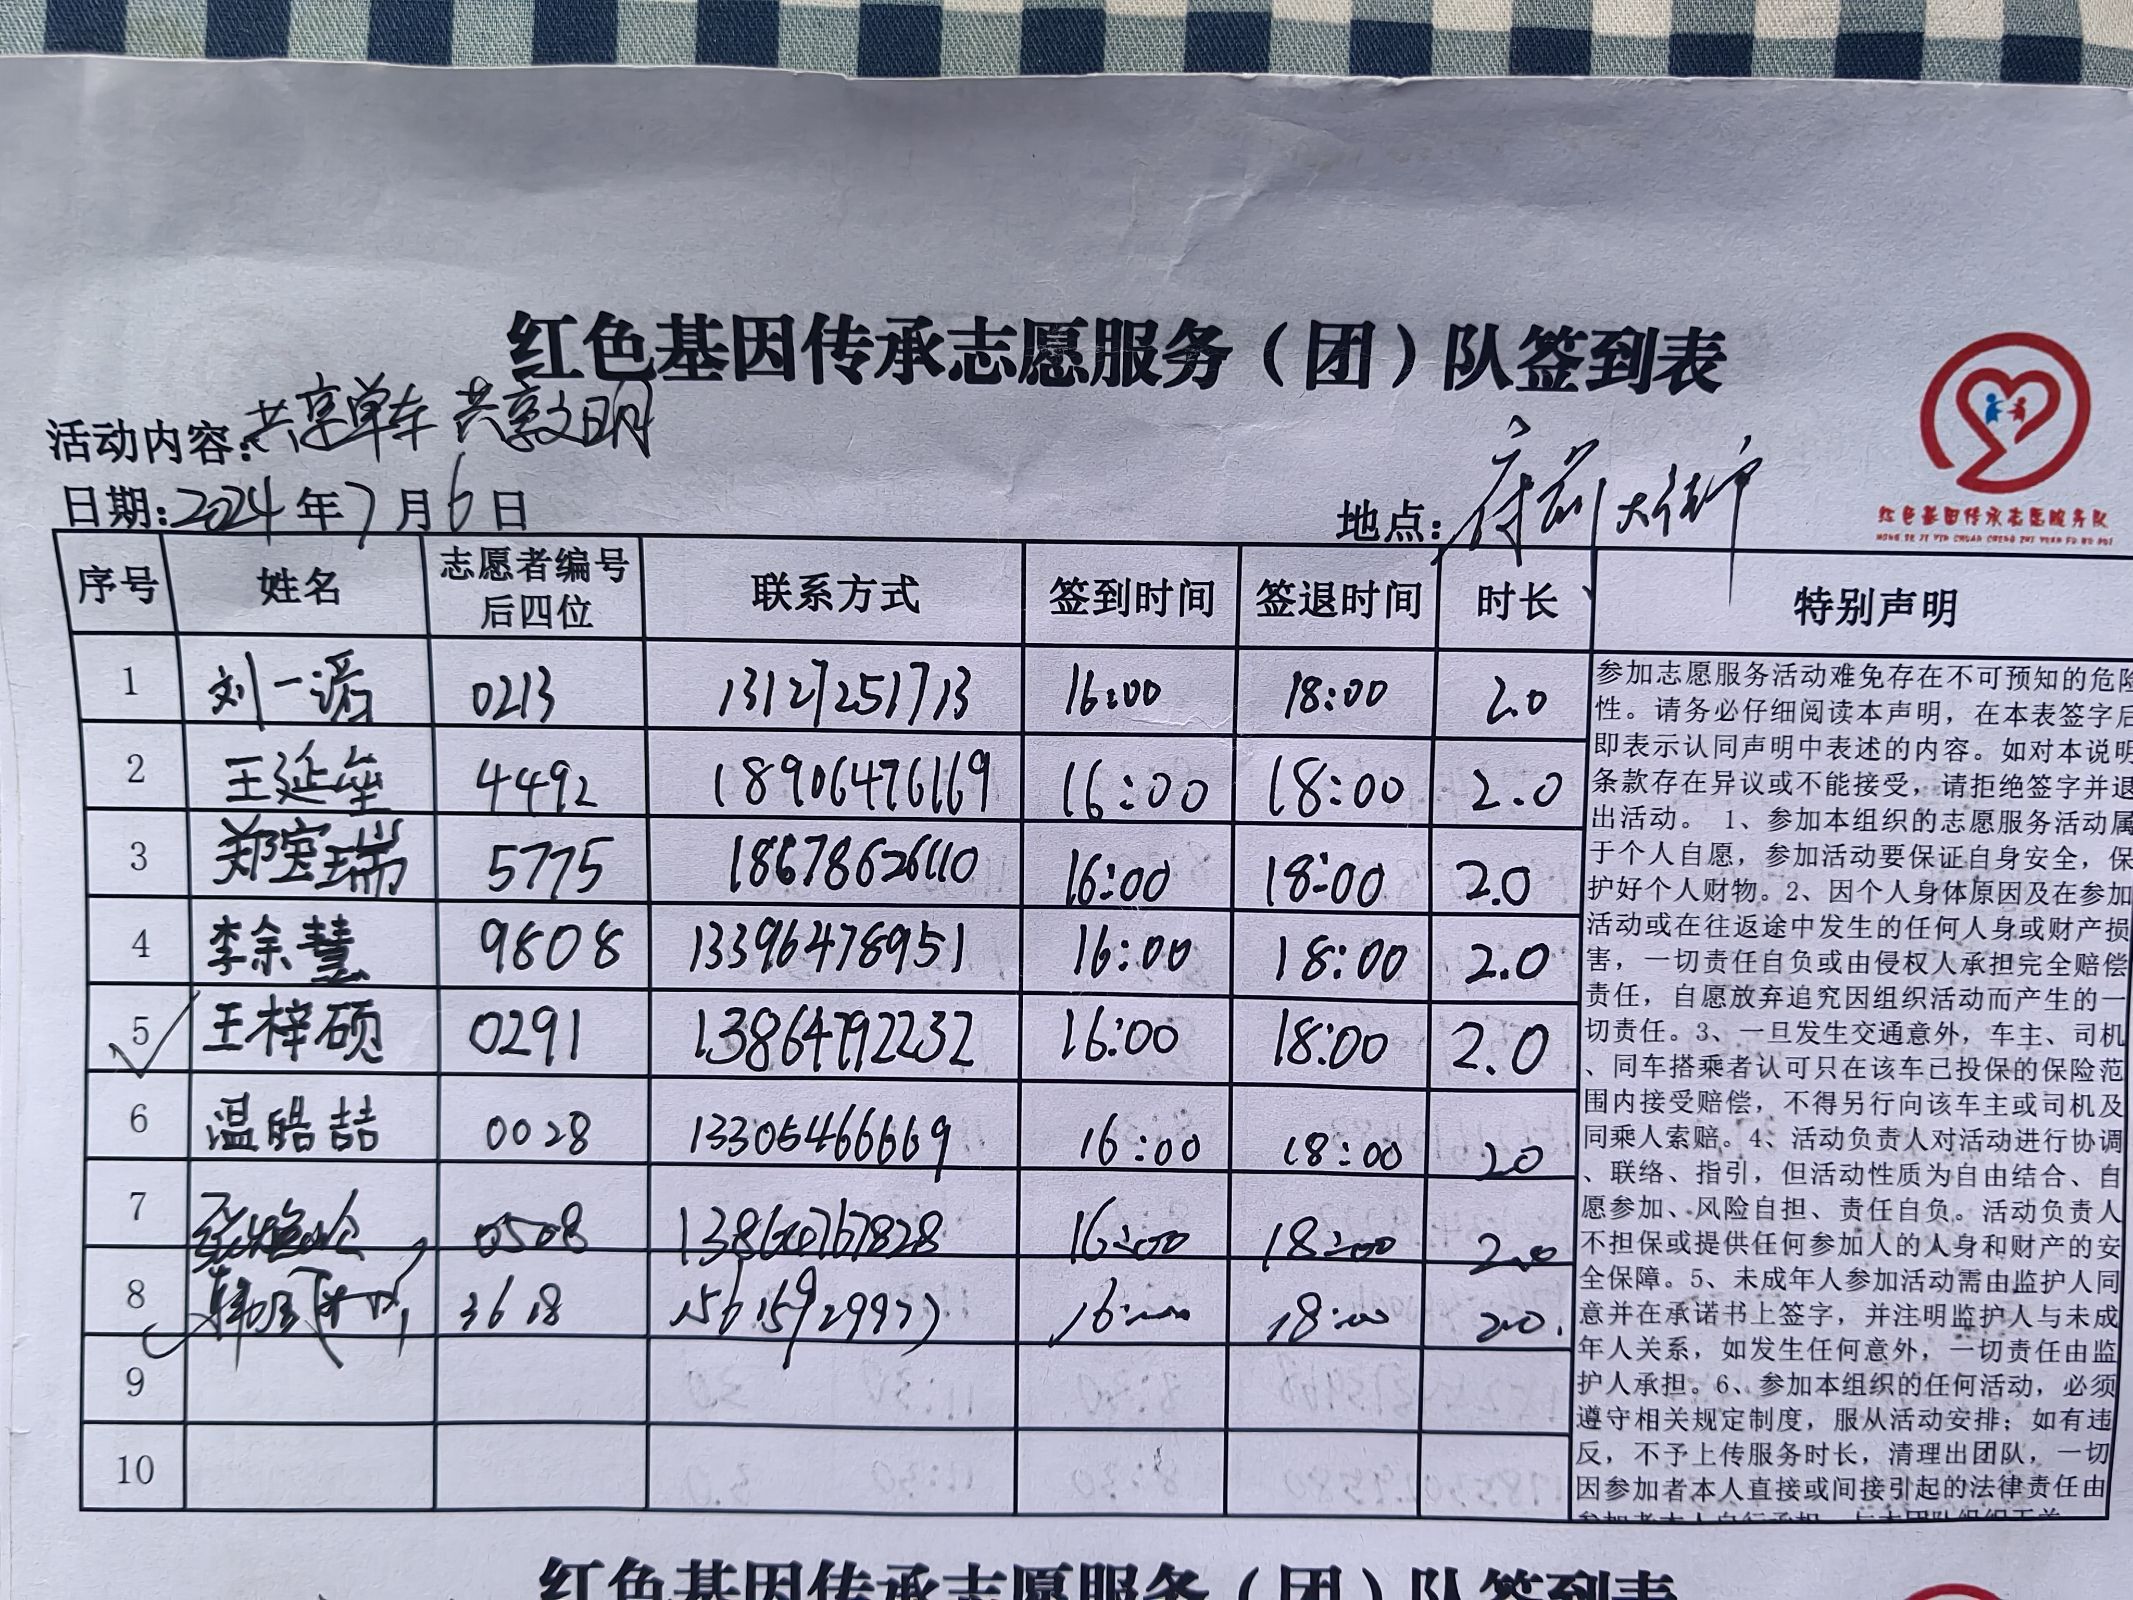 红色基因传承志愿服务（团）队签到表
活动内容：共享单车 共享文明
日期：2024年7月6日
地点：府前大街
红色基因传承志愿服务队
HONG SE JI YIN CHUAN CHENG ZHI YUAN FU WU DUI
序号 姓名 志愿者编号后四位 联系方式 签到时间 签退时间 时长 特别声明
1 刘一诺 0213 13127251713 16:00 18:00 2.0
2 王延垒 4492 18906476169 16:00 18:00 2.0
3 郑宝瑞 5775 18678626110 16:00 18:00 2.0
4 李余慧 9808 13396478951 16:00 18:00 2.0
5 王梓硕 0291 13864792232 16:00 18:00 2.0
6 温皓喆 0028 13305466669 16:00 18:00 2.0
7 0508 13860767828 16:00 18:00 2.0
8 3618 16:00 18:00 2.0
9
10
参加志愿服务活动难免存在不可预知的危险
性。请务必仔细阅读本声明，在本表签字后
即表示认同声明中表述的内容。如对本说明
条款存在异议或不能接受，请拒绝签字并退
出活动。 1、参加本组织的志愿服务活动属
于个人自愿，参加活动要保证自身安全，保
护好个人财物。2、因个人身体原因及在参加
活动或在往返途中发生的任何人身或财产损
害，一切责任自负或由侵权人承担完全赔偿
责任，自愿放弃追究因组织活动而产生的一
切责任。3、一旦发生交通意外，车主、司机
、同车搭乘者认可只在该车已投保的保险范
围内接受赔偿，不得另行向该车主或司机及
同乘人索赔。4、活动负责人对活动进行协调
、联络、指引，但活动性质为自由结合、自
愿参加、风险自担、责任自负。活动负责人
不担保或提供任何参加人的人身和财产的安
全保障。5、未成年人参加活动需由监护人同
意并在承诺书上签字，并注明监护人与未成
年人关系，如发生任何意外，一切责任由监
护人承担。6、参加本组织的任何活动，必须
遵守相关规定制度，服从活动安排；如有违
反，不予上传服务时长，清理出团队，一切
因参加者本人直接或间接引起的法律责任由
红色基因传承志愿服务（团）队签到表